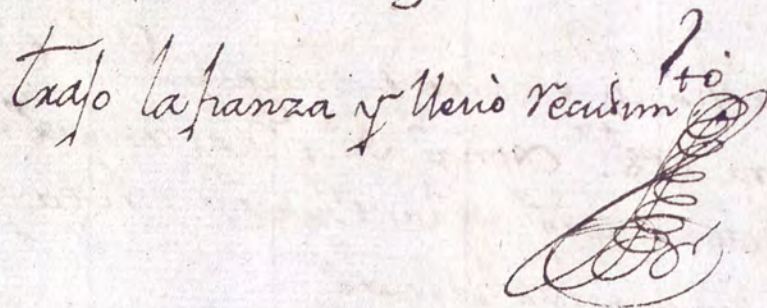 traxo la fianza y lleuò recudim.to